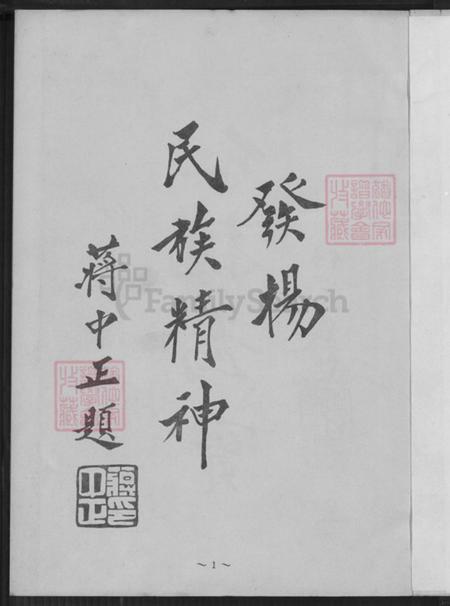 發揚
民族精神
蔣中正題
蔣中正印
FamilySearch
~1~